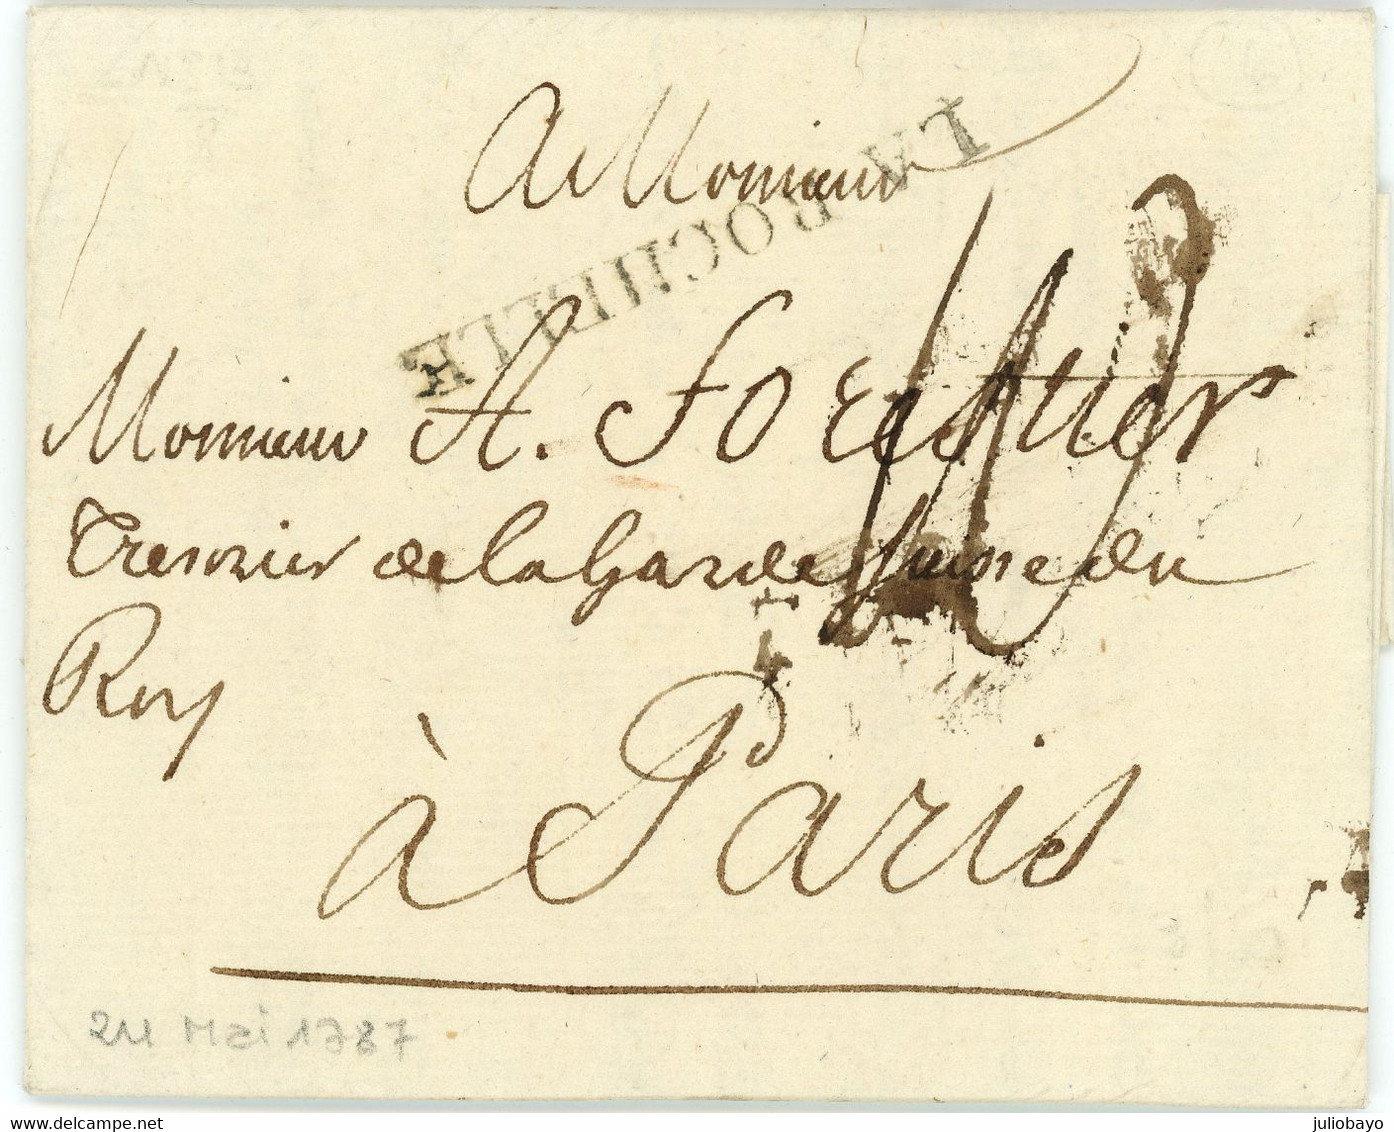 A Monsieur
LA ROCHELLE
Monsieur A. Forestier
Tresorier de la Garde Suisse du
Roy
à Paris
24 Mai 1787
www.delcampe.net
juliobayo